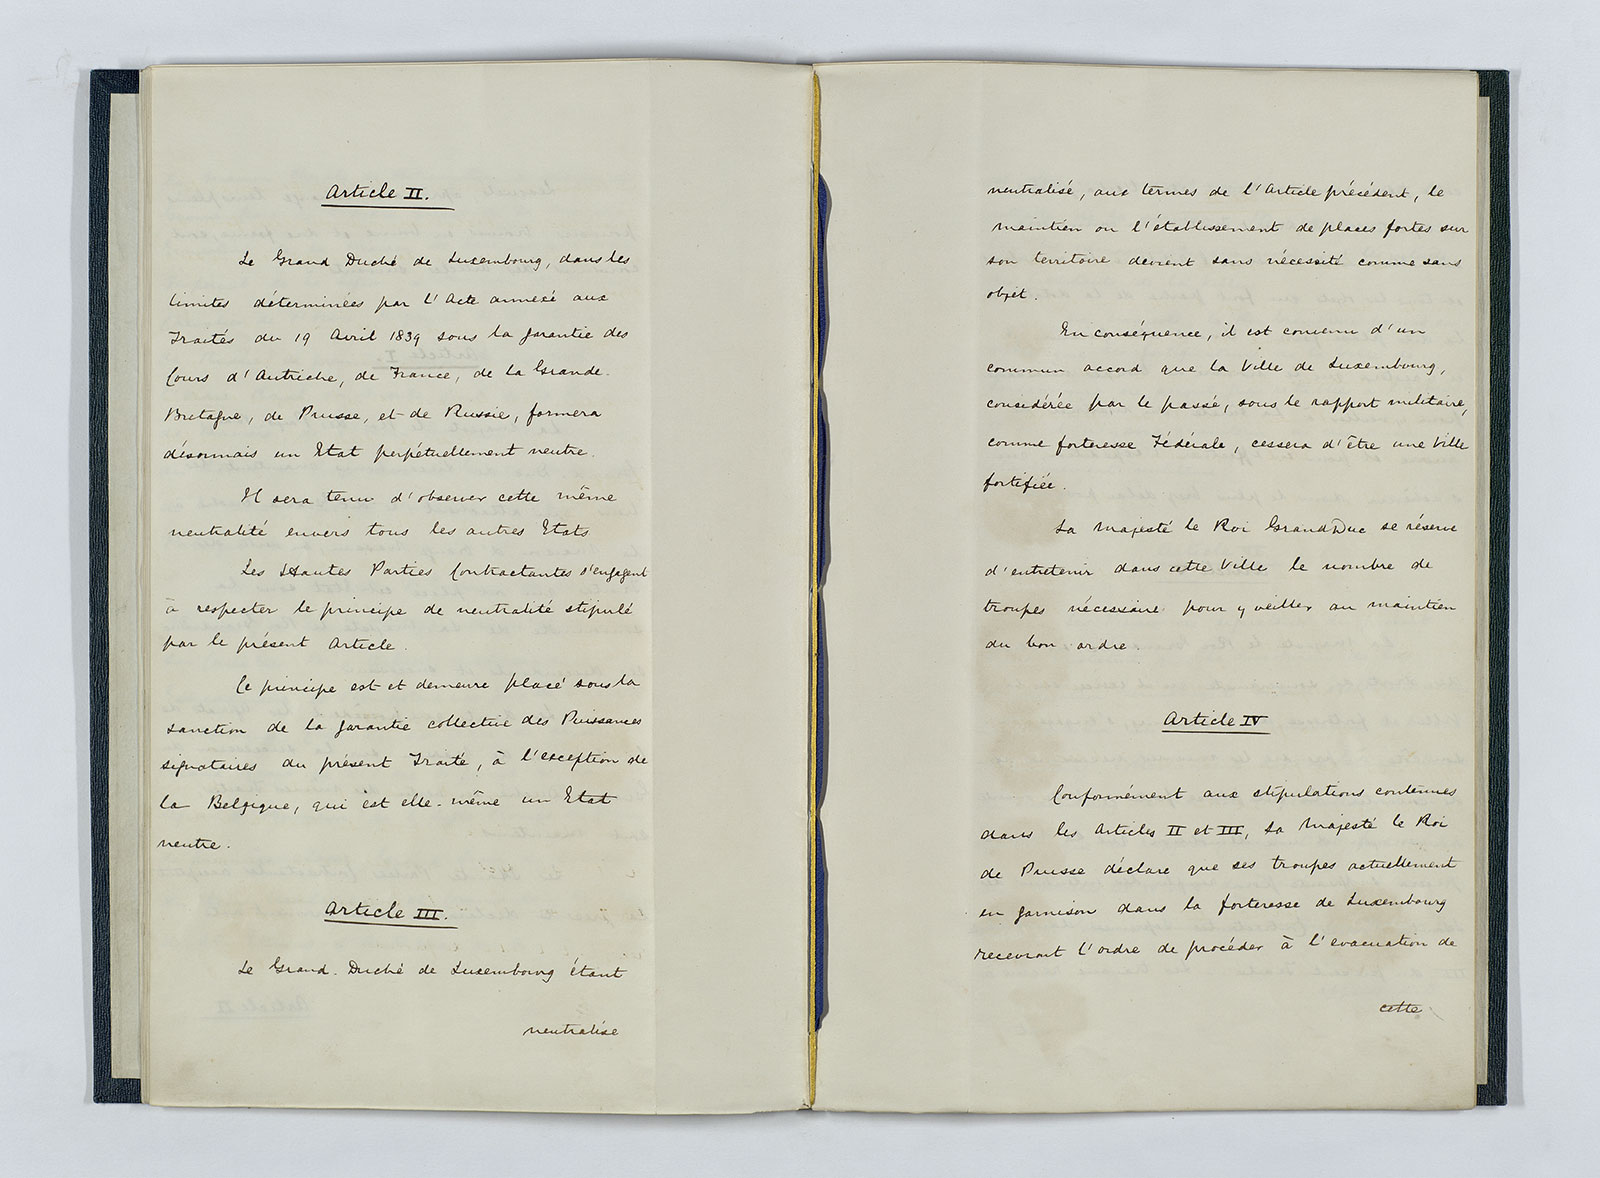 Article II.
Le Grand Duché de Luxembourg, dans les
limites déterminées par l'Acte annexé aux
Traités du 19 Avril 1839 sous la garantie des
Cours d'Autriche, de France, de la Grande-
Bretagne, de Prusse, et de Russie, formera
désormais un Etat perpétuellement neutre.
Il sera tenu d'observer cette même
neutralité envers tous les autres Etats
Les Hautes Parties Contractantes s'engagent
à respecter le principe de neutralité stipulé
par le présent Article.
Ce principe est et demeure placé sous la
sanction de la garantie collective des Puissances
signataires du présent Traité, à l'exception de
la Belgique, qui est elle-même un Etat
neutre.
Article III.
Le Grand-Duché de Luxembourg étant
neutralisé
neutralisé, aux termes de l'Article précédent, le
maintien ou l'établissement de places fortes sur
son territoire devient sans nécessité comme sans
objet.
En conséquence, il est convenu d'un
commun accord que la Ville de Luxembourg,
considérée par le passé, sous le rapport militaire,
comme forteresse Fédérale, cessera d'être une Ville
fortifiée.
Sa Majesté le Roi Grand Duc se réserve
d'entretenir dans cette Ville le nombre de
troupes nécessaire pour y veiller au maintien
du bon ordre.
Article IV
Conformément aux stipulations contenues
dans les Articles II et III, Sa Majesté le Roi
de Prusse déclare que ses troupes actuellement
en garnison dans la forteresse de Luxembourg
recevront l'ordre de procéder à l'evacuation de
cette